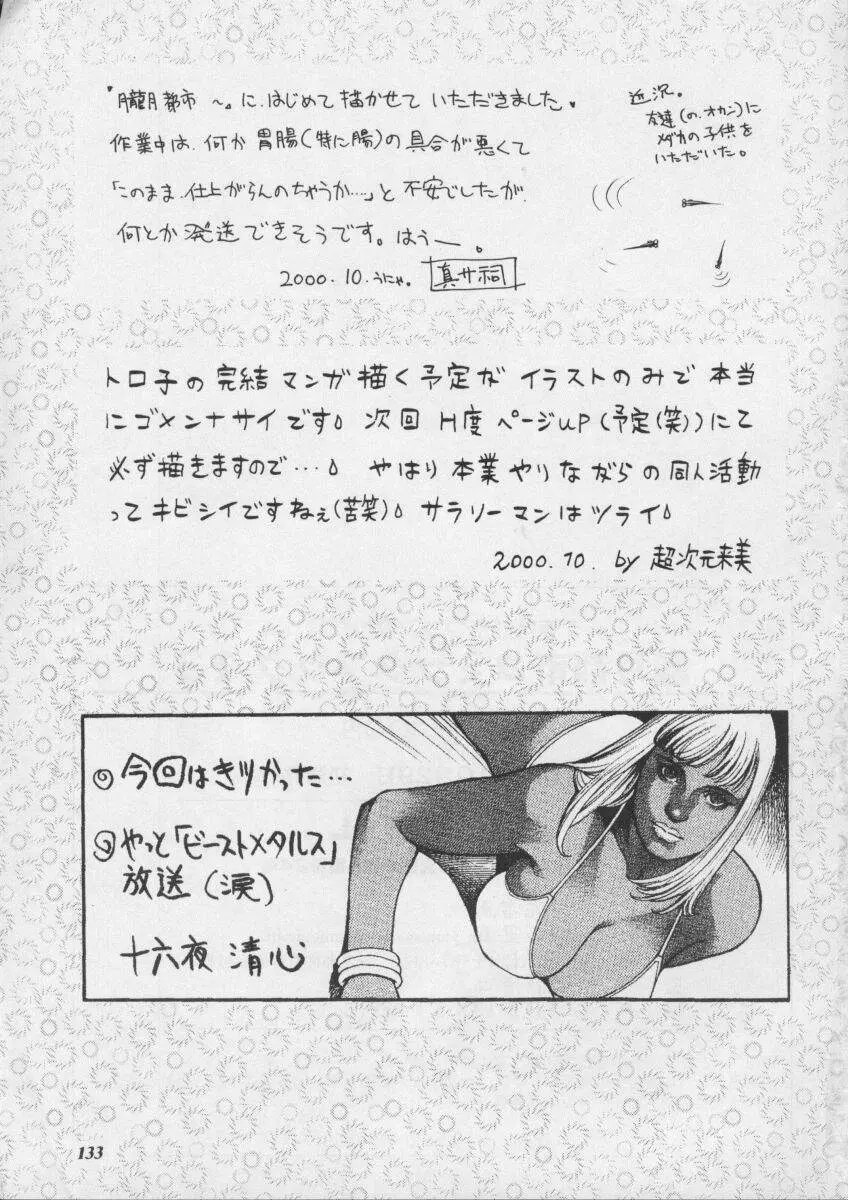 『朧月都市 〜』に、はじめて描かせていただきました。
作業中は、何か胃腸(特に腸)の具合が悪くて
「このまま、仕上がらんのちゃうか…」と不安でしたが、
何とか発送できそうです。はうー。
2000.10.うにゃ。 真サ祠
近況。
友達(の、オカン)に
メダカの子供を
いただいた。
トロ子の完結マンガ描く予定が イラストのみで 本当
にゴメンナサイです。次回 H度 ページup(予定(笑))にて
必ず描きますので…。 やはり 本業 やりながらの同人活動
ってキビシイですねぇ(苦笑)。サラリーマンはツライ。
2000.10. by 超次元来美
今回はきツかった…
やっと「ビーストメタルス」
放送(涙)
十六夜 清心
133